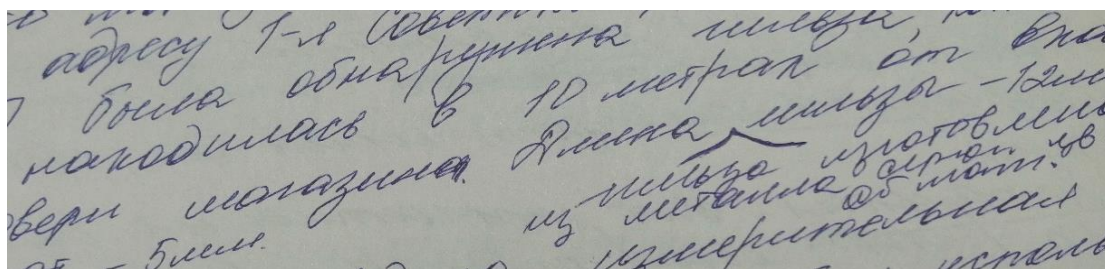 адресу 1-я Советск
была обнаружена гильза,
находилась в 10 метрах от вхо
двери магазина. Длина гильзы - 12м
гильза изготовлена
из металла серого цв
- 5 мм.
измерительная
исполь